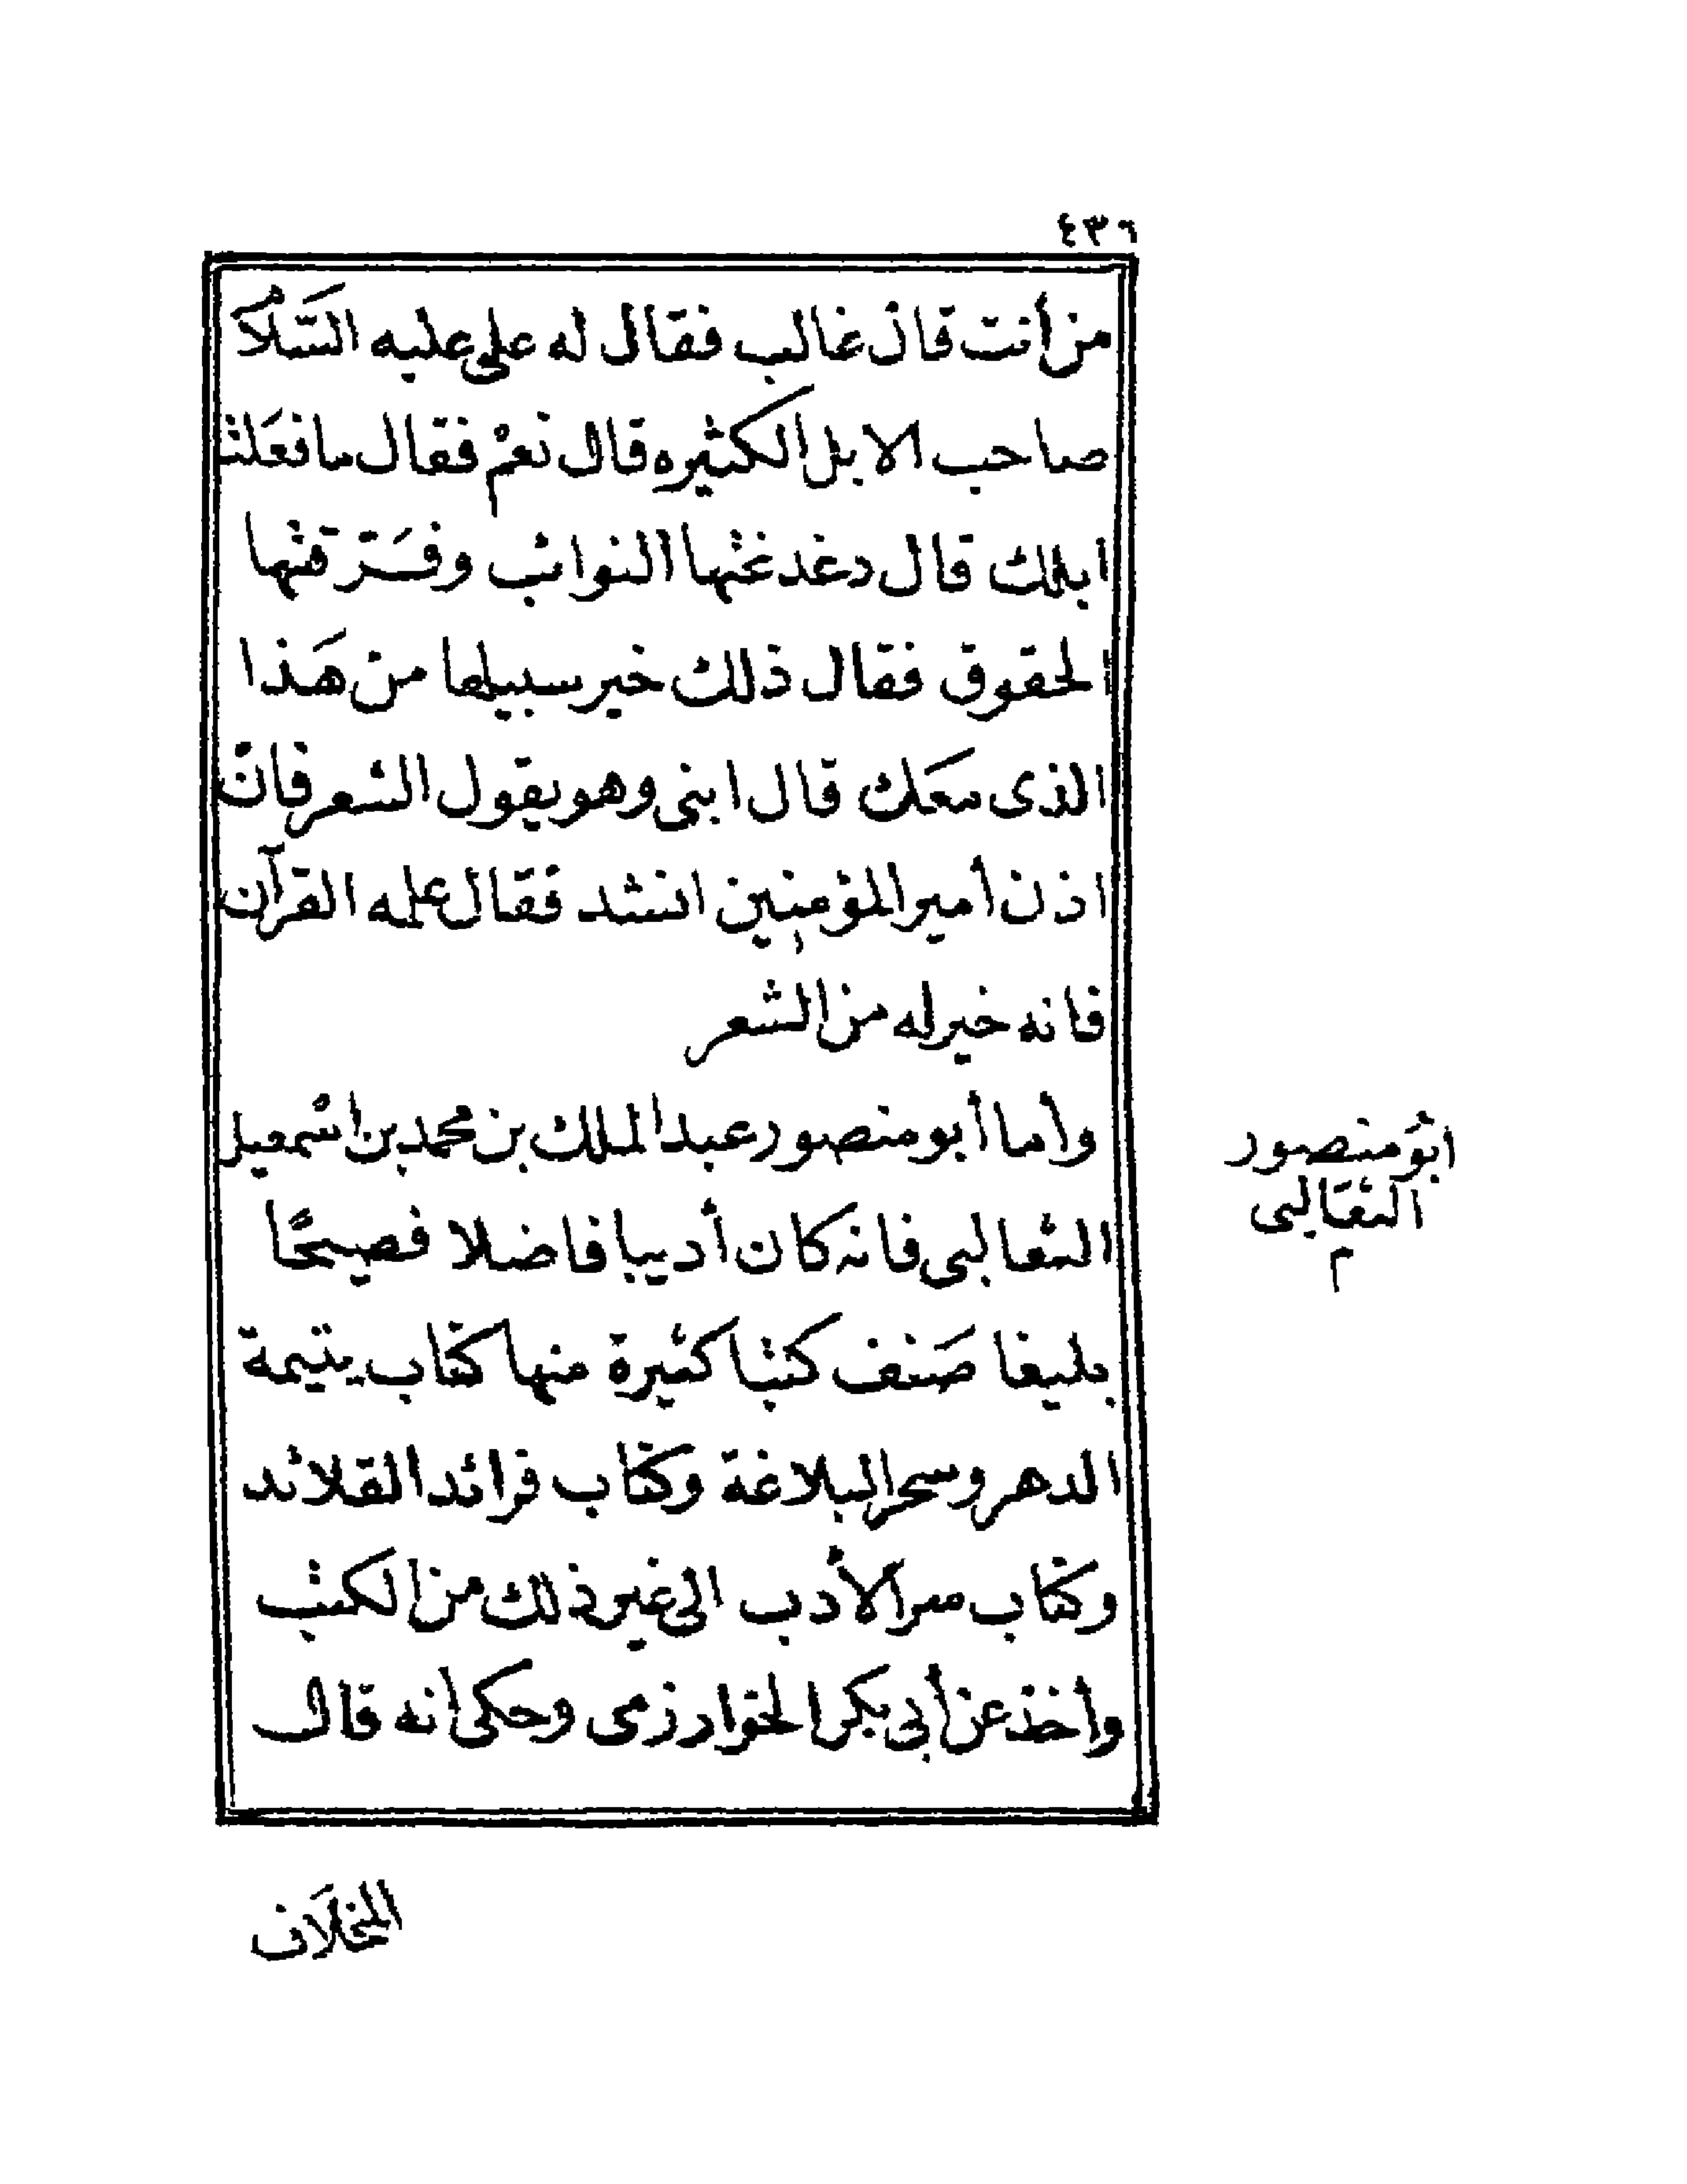 ٤٣٦
من أنت قال غالب فقال له على عليه السَّلام
صاحب الابل الكثيره قال نعمْ فقال ما فعَلت
ابلك قال دغدغتها النوائب وفَرقتها
الحقوق فقال ذلك خير سبيلها من هَذا
الذى معَك قال ابنى وهو يقول الشعر فان
اذن أمير المؤمنين انشد فقال علمه القرآن
فانه خير له من الشعر
وأما أبو منصور عبد الملك بن محمد بن اسْمعيل
الثعالبى فانه كان أديبا فاضلا فصيحًا
بليغا صَنف كتبا كثيرة منها كتاب يتيمة
الدهر وسحر البلاغة وكتاب فرائد القلائد
وكتاب سر الأدب الى غير ذلك من الكتب
وأخذ عن أبى بكر الخوارزمى وحكى انه قال
ابوُ منصور
الثعَالبى
م